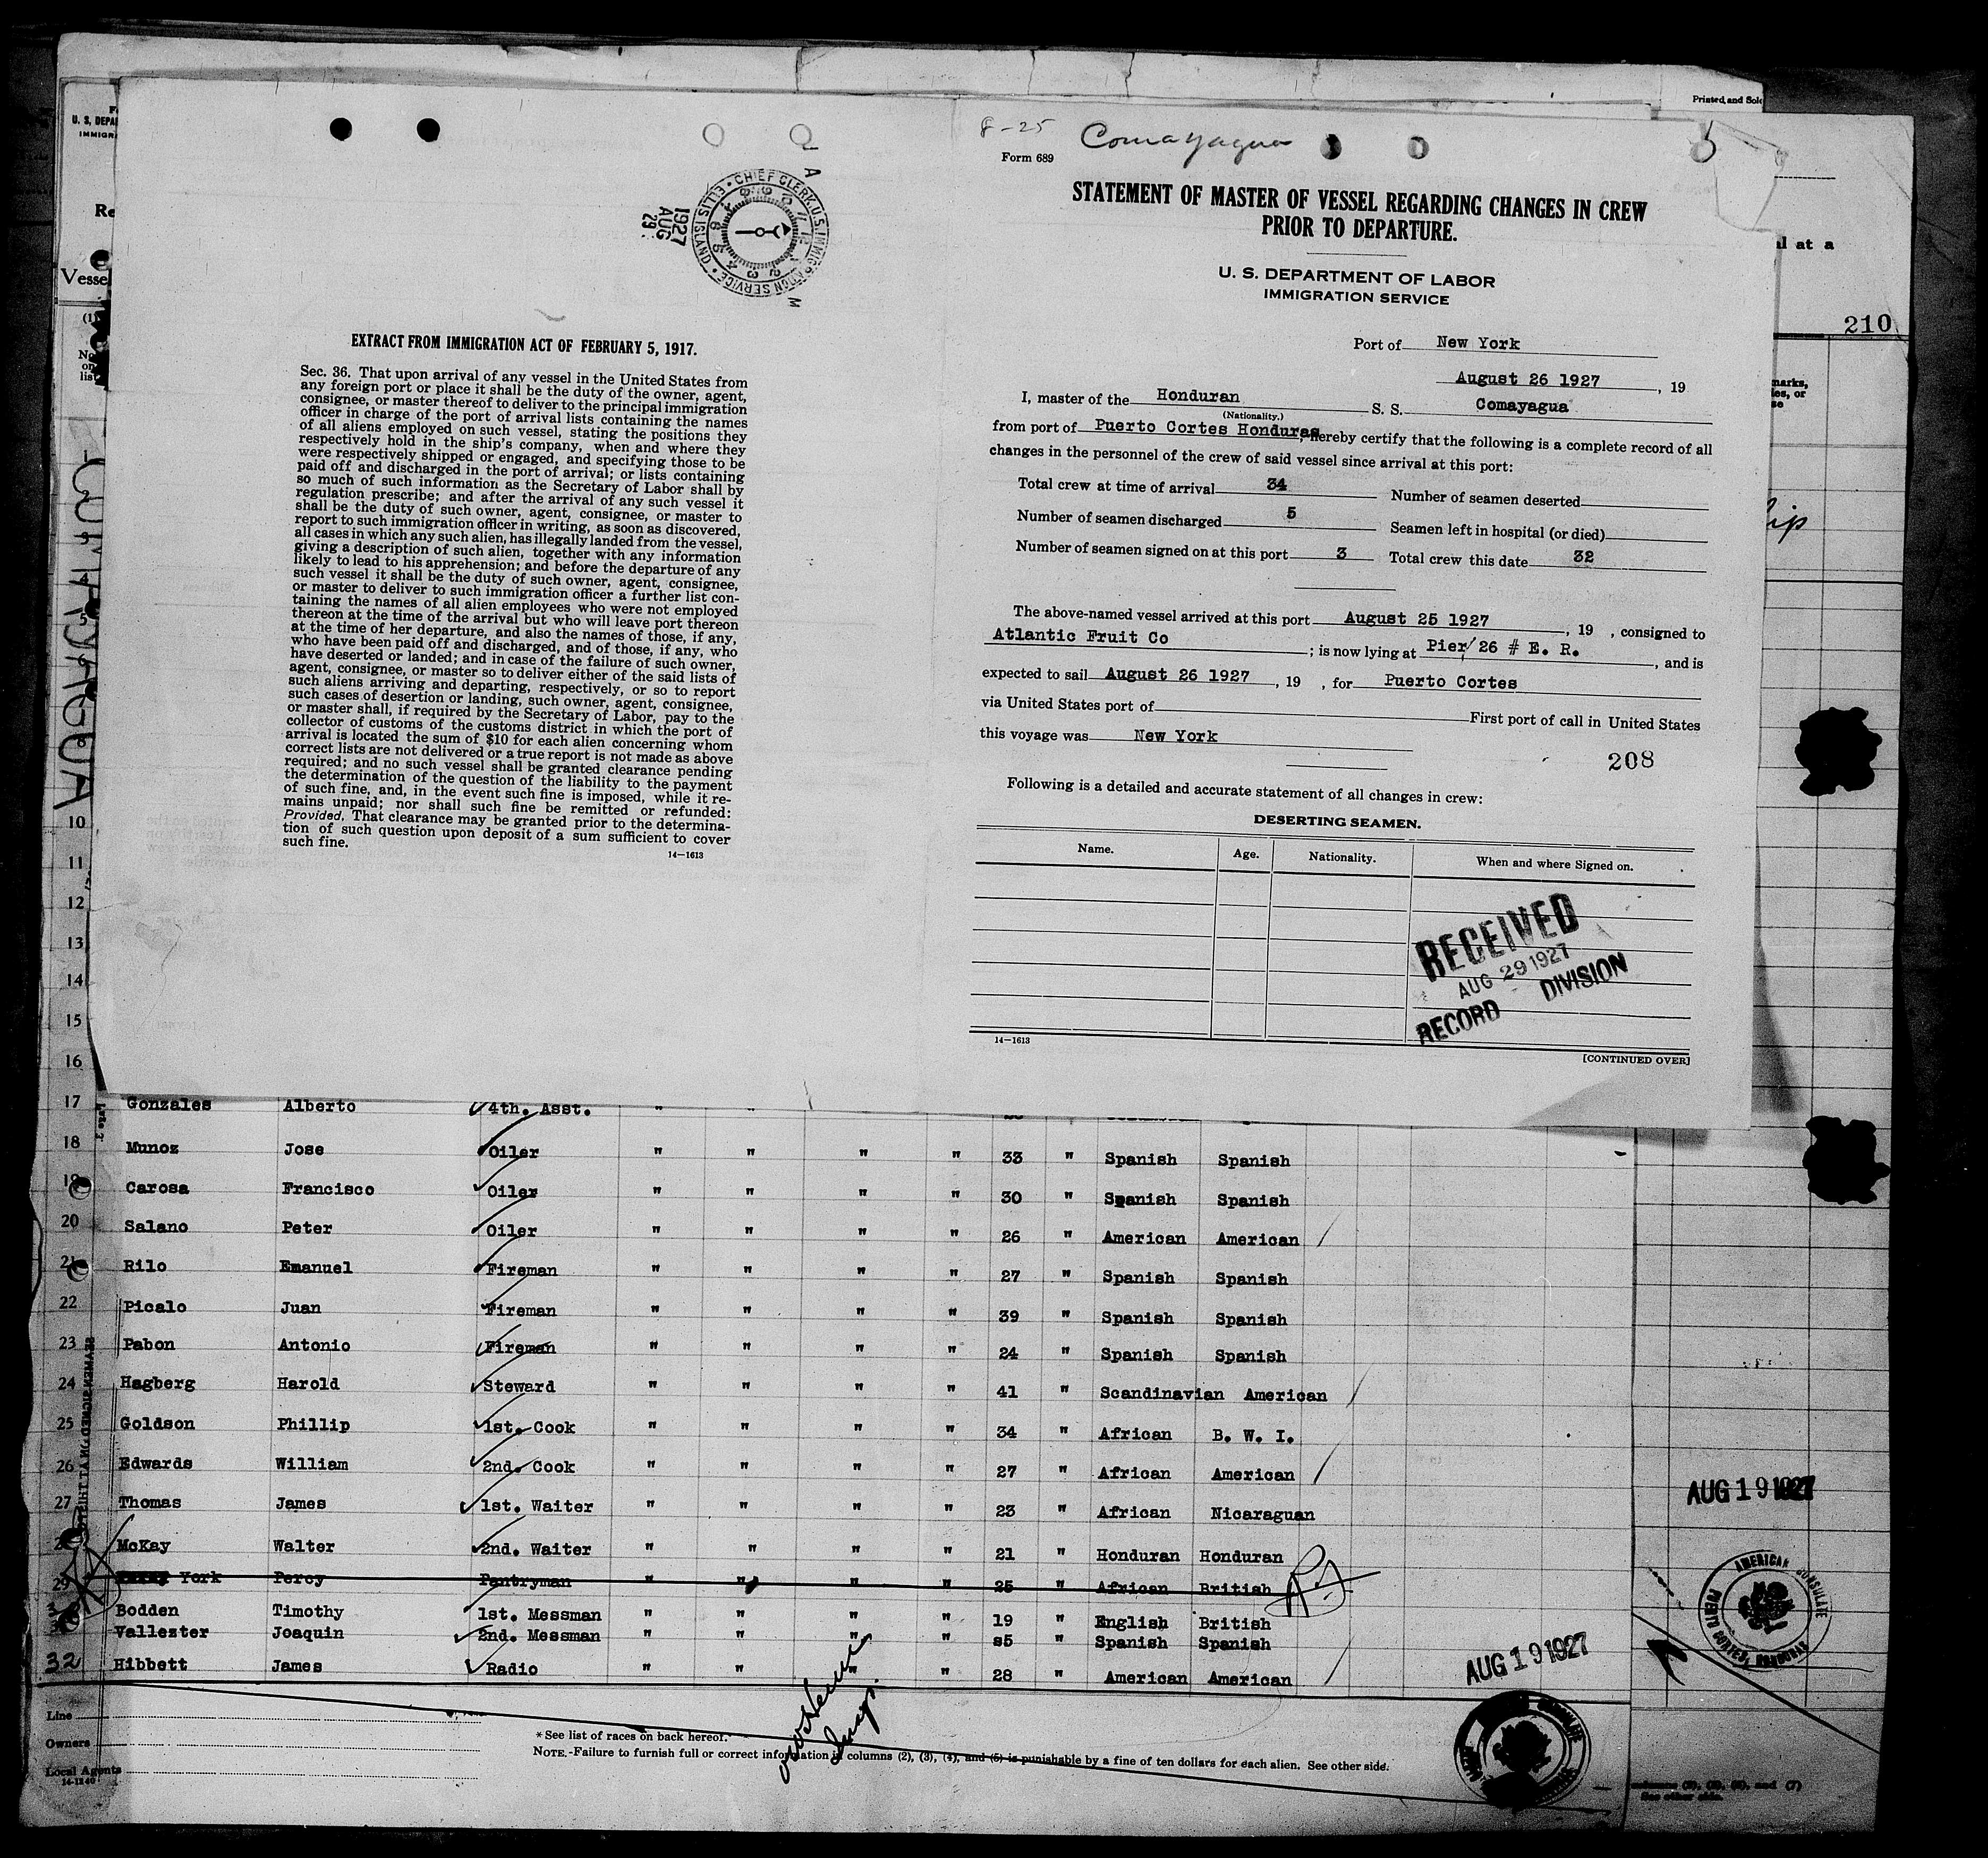 Printed and Sold
U. S. DEPA
IMMIGRA
Re
Vesse
(1)
No
on
list
al at a
210
marks,
les, or
se
8-25 Comayagua
Form 689
STATEMENT OF MASTER OF VESSEL REGARDING CHANGES IN CREW
PRIOR TO DEPARTURE.
U. S. DEPARTMENT OF LABOR
IMMIGRATION SERVICE
CHIEF CLERK, U.S. IMMIGRATION SERVICE • ELLIS ISLAND •
1927
AUG
29
A
M
EXTRACT FROM IMMIGRATION ACT OF FEBRUARY 5, 1917.
Sec. 36. That upon arrival of any vessel in the United States from
any foreign port or place it shall be the duty of the owner, agent,
consignee, or master thereof to deliver to the principal immigration
officer in charge of the port of arrival lists containing the names
of all aliens employed on such vessel, stating the positions they
respectively hold in the ship's company, when and where they
were respectively shipped or engaged, and specifying those to be
paid off and discharged in the port of arrival; or lists containing
so much of such information as the Secretary of Labor shall by
regulation prescribe; and after the arrival of any such vessel it
shall be the duty of such owner, agent, consignee, or master to
report to such immigration officer in writing, as soon as discovered,
all cases in which any such alien, has illegally landed from the vessel,
giving a description of such alien, together with any information
likely to lead to his apprehension; and before the departure of any
such vessel it shall be the duty of such owner, agent, consignee,
or master to deliver to such immigration officer a further list con-
taining the names of all alien employees who were not employed
thereon at the time of the arrival but who will leave port thereon
at the time of her departure, and also the names of those, if any,
who have been paid off and discharged, and of those, if any, who
have deserted or landed; and in case of the failure of such owner,
agent, consignee, or master so to deliver either of the said lists of
such aliens arriving and departing, respectively, or so to report
such cases of desertion or landing, such owner, agent, consignee,
or master shall, if required by the Secretary of Labor, pay to the
collector of customs of the customs district in which the port of
arrival is located the sum of $10 for each alien concerning whom
correct lists are not delivered or a true report is not made as above
required; and no such vessel shall be granted clearance pending
the determination of the question of the liability to the payment
of such fine, and, in the event such fine is imposed, while it re-
mains unpaid; nor shall such fine be remitted or refunded:
Provided, That clearance may be granted prior to the determina-
tion of such question upon deposit of a sum sufficient to cover
such fine.
14—1613
Port of New York
August 26 1927, 19
I, master of the Honduran S. S. Comayagua
(Nationality.)
from port of Puerto Cortes Honduras, hereby certify that the following is a complete record of all
changes in the personnel of the crew of said vessel since arrival at this port:
Total crew at time of arrival 34 Number of seamen deserted
Number of seamen discharged 5 Seamen left in hospital (or died)
Number of seamen signed on at this port 3 Total crew this date 32
The above-named vessel arrived at this port August 25 1927, 19 , consigned to
Atlantic Fruit Co; is now lying at Pier 26 # E. R., and is
expected to sail August 26 1927, 19 , for Puerto Cortes
via United States port of First port of call in United States
this voyage was New York
208
Following is a detailed and accurate statement of all changes in crew:
DESERTING SEAMEN.
Name. Age. Nationality. When and where Signed on.
RECEIVED
AUG 29 1927
RECORD DIVISION
14—1613
[CONTINUED OVER]
COMAYAGUA
4
5
8
10
11
12
13
14
15
16
17 Gonzales Alberto 4th. Asst. " "
18 Munoz Jose Oiler " " " " 33 " Spanish Spanish
19 Carosa Francisco Oiler " " " " 30 " Spanish Spanish
20 Salano Peter Oiler " " " " 26 " American American
21 Rilo Emanuel Fireman " " " " 27 " Spanish Spanish
22 Picalo Juan Fireman " " " " 39 " Spanish Spanish
23 Pabon Antonio Fireman " " " " 24 " Spanish Spanish
24 Hagberg Harold Steward " " " " 41 " Scandinavian American
25 Goldson Phillip 1st. Cook " " " " 34 " African B. W. I.
26 Edwards William 2nd. Cook " " " " 27 " African American
27 Thomas James 1st. Waiter " " " " 23 " African Nicaraguan
McKay Walter 2nd. Waiter " " " " 21 " Honduran Honduran
29 York Percy Pantryman " " " " 25 " African British
Bodden Timothy 1st. Messman " " " " 19 " English British
Vallester Joaquin 2nd. Messman " " " " 25 " Spanish Spanish
32 Hibbett James Radio " " " " 28 " American American
SEAMEN SIGNED ON AT THIS
AUG 19 1927
AUG 19 1927
AMERICAN CONSULATE
PUERTO CORTES, HONDURAS
Line
Owners
Local Agents
14-1240
*See list of races on back hereof.
NOTE.-Failure to furnish full or correct information in columns (2), (3), (4), and (5) is punishable by a fine of ten dollars for each alien. See other side.
columns (2), (3), (6), and (7)
See other side.